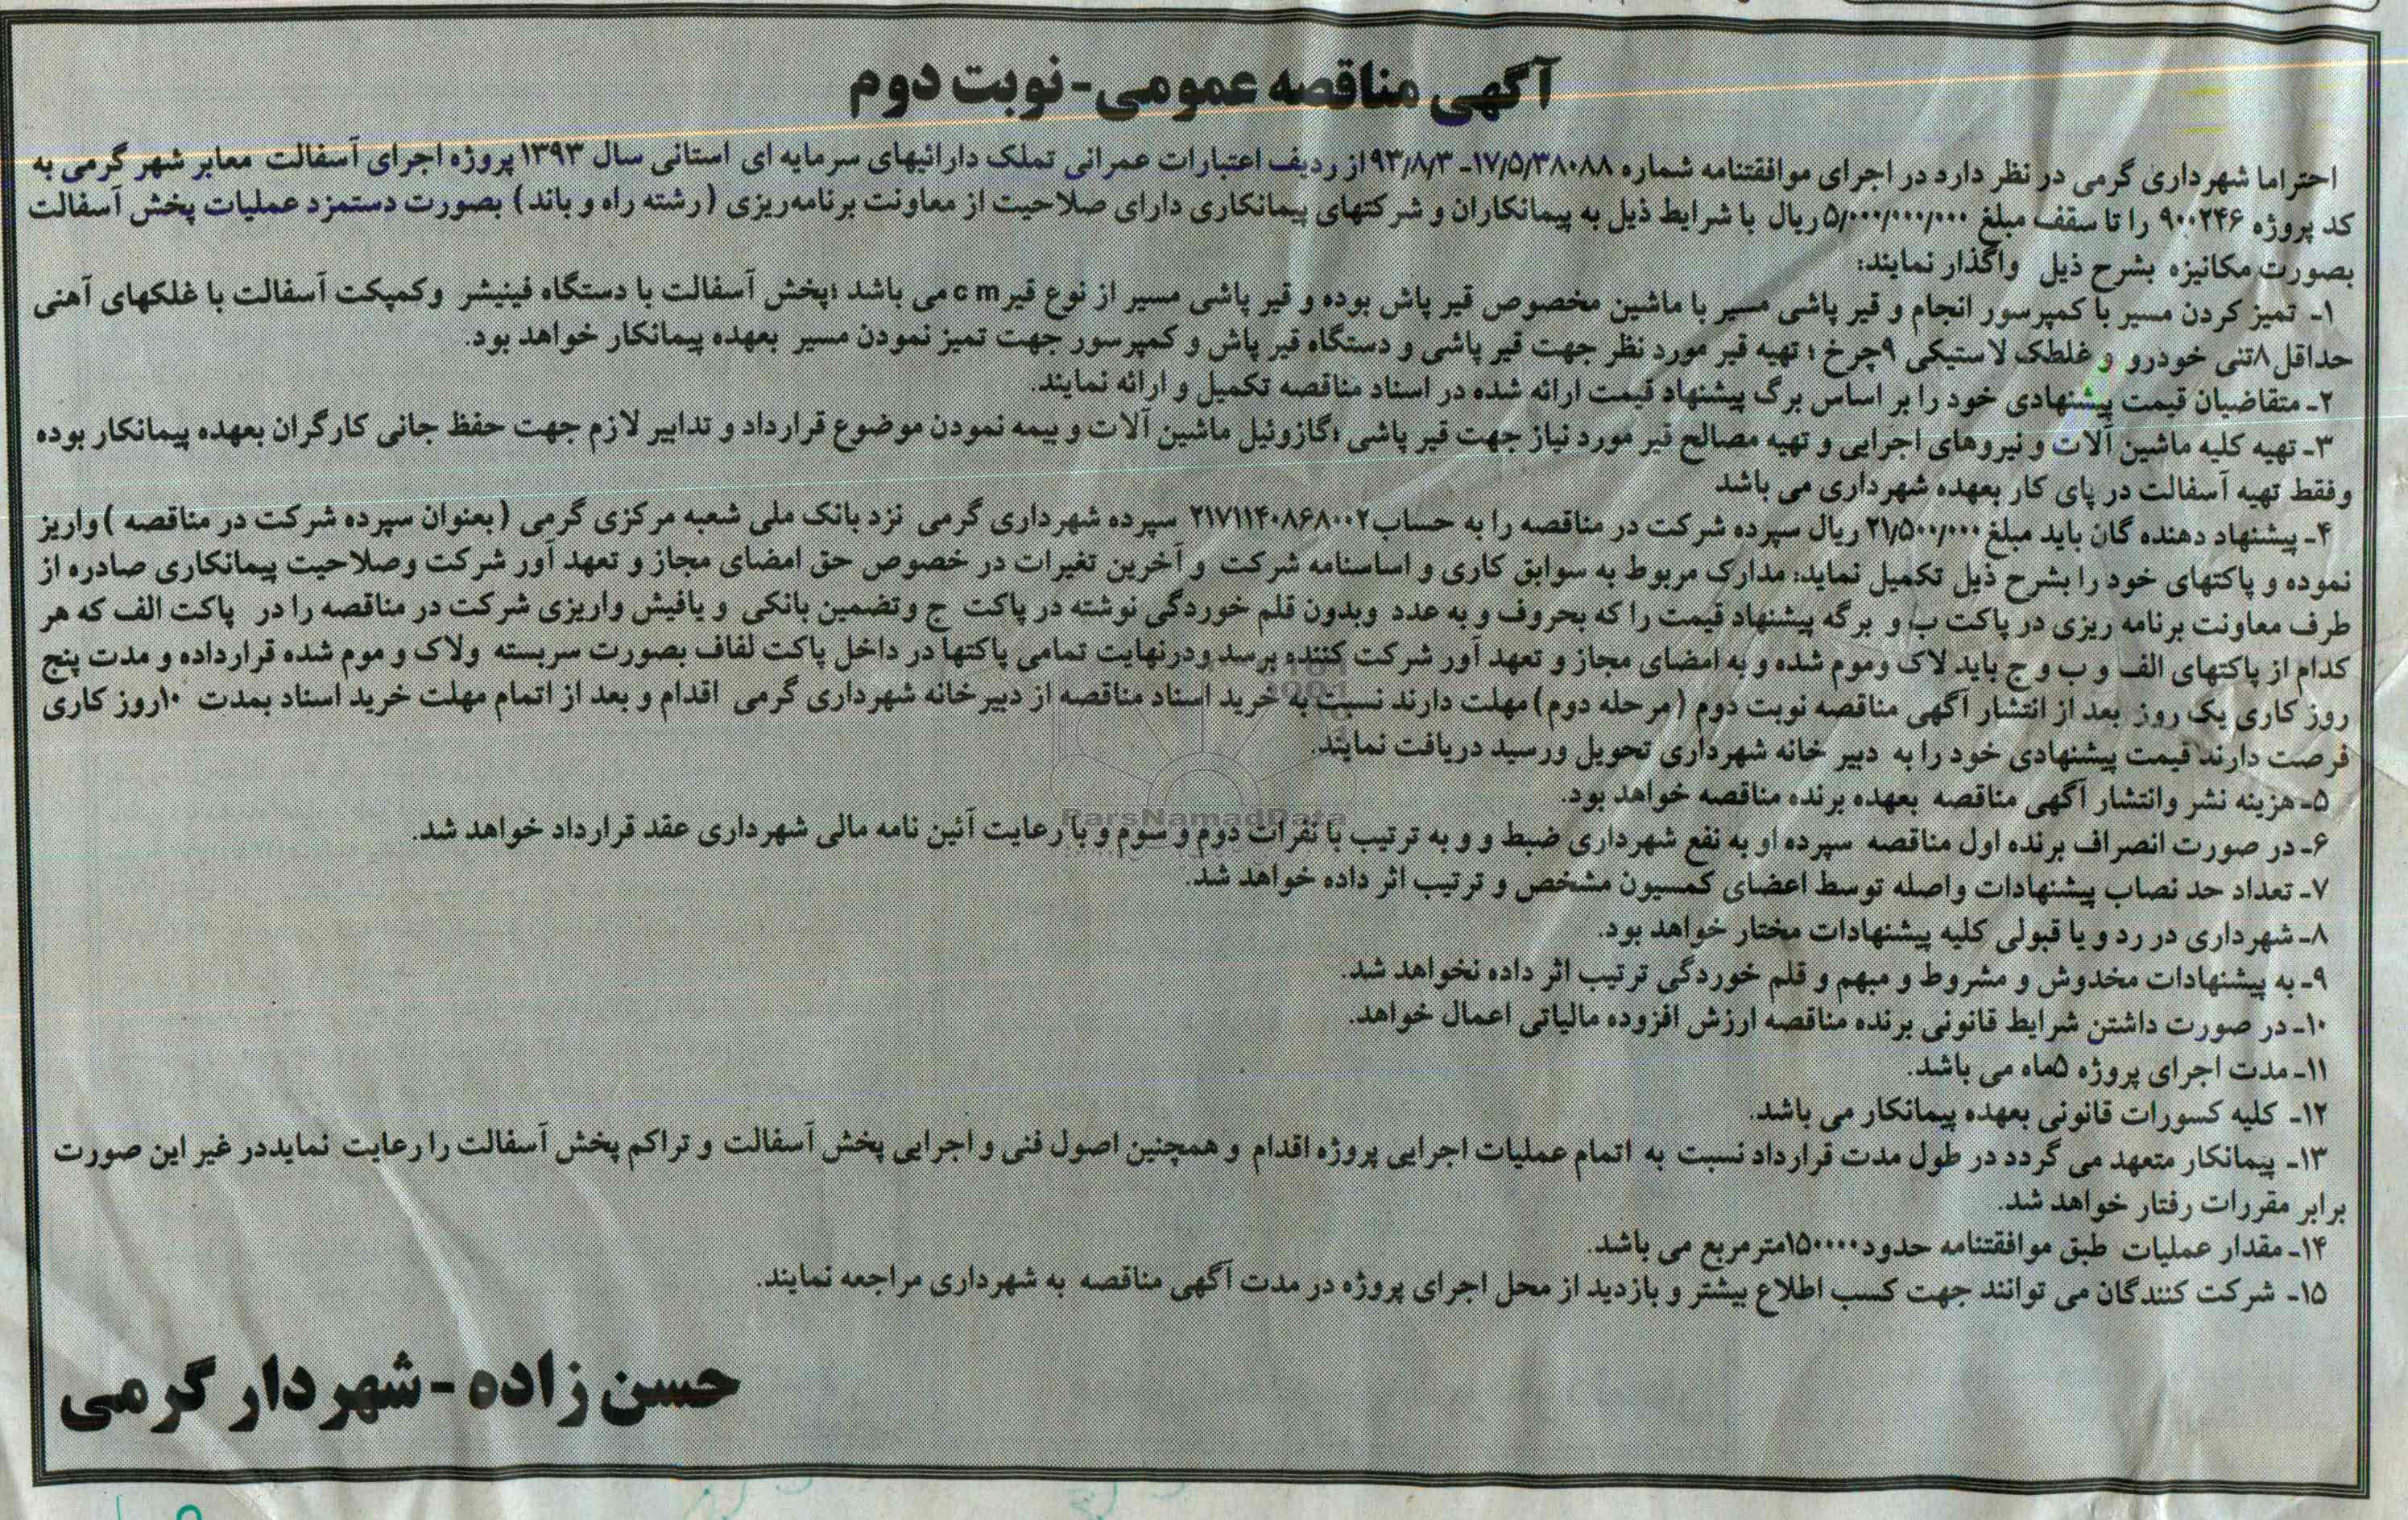 آگهی مناقصه عمومی-نوبت دوم
احتراما شهرداری گرمی در نظر دارد در اجرای موافقتنامه شماره ۱۷/۵/۳۸۰۸۸- ۹۳/۸/۳ از ردیف اعتبارات عمرانی تملک دارائیهای سرمایه ای استانی سال ۱۳۹۳ پروژه اجرای آسفالت معابر شهر گرمی به
کد پروژه ۹۰۰۲۴۶ را تا سقف مبلغ ۵/۰۰۰/۰۰۰/۰۰۰ ریال با شرایط ذیل به پیمانکاران و شرکتهای پیمانکاری دارای صلاحیت از معاونت برنامه‌ریزی (رشته راه و باند) بصورت دستمزد عملیات پخش آسفالت
بصورت مکانیزه بشرح ذیل واگذار نمایند:
۱- تمیز کردن مسیر با کمپرسور انجام و قیر پاشی مسیر با ماشین مخصوص قیر پاش بوده و قیر پاشی مسیر از نوع قیر cm می باشد ؛پخش آسفالت با دستگاه فینیشر وکمپکت آسفالت با غلکهای آهنی
حداقل ۸تنی خودرو و غلطک لاستیکی ۹چرخ ؛ تهیه قیر مورد نظر جهت قیر پاشی و دستگاه قیر پاش و کمپرسور جهت تمیز نمودن مسیر بعهده پیمانکار خواهد بود.
۲- متقاضیان قیمت پیشنهادی خود را بر اساس برگ پیشنهاد قیمت ارائه شده در اسناد مناقصه تکمیل و ارائه نمایند.
۳- تهیه کلیه ماشین آلات و نیروهای اجرایی و تهیه مصالح قیر مورد نیاز جهت قیر پاشی ؛گازوئیل ماشین آلات و بیمه نمودن موضوع قرارداد و تدابیر لازم جهت حفظ جانی کارگران بعهده پیمانکار بوده
وفقط تهیه آسفالت در پای کار بعهده شهرداری می باشد
۴- پیشنهاد دهنده گان باید مبلغ ۲۱/۵۰۰/۰۰۰ ریال سپرده شرکت در مناقصه را به حساب ۲۱۷۱۱۴۰۸۶۸۰۰۲ سپرده شهرداری گرمی نزد بانک ملی شعبه مرکزی گرمی (بعنوان سپرده شرکت در مناقصه )واریز
نموده و پاکتهای خود را بشرح ذیل تکمیل نماید: مدارک مربوط به سوابق کاری و اساسنامه شرکت و آخرین تغیرات در خصوص حق امضای مجاز و تعهد آور شرکت وصلاحیت پیمانکاری صادره از
طرف معاونت برنامه ریزی در پاکت ب و برگه پیشنهاد قیمت را که بحروف و به عدد وبدون قلم خوردگی نوشته در پاکت ج وتضمین بانکی و یافیش واریزی شرکت در مناقصه را در پاکت الف که هر
کدام از پاکتهای الف و ب و ج باید لاک وموم شده و به امضای مجاز و تعهد آور شرکت کننده برسد ودرنهایت تمامی پاکتها در داخل پاکت لفاف بصورت سربسته ولاک و موم شده قرارداده و مدت پنج
روز کاری یک روز بعد از انتشار آگهی مناقصه نوبت دوم (مرحله دوم) مهلت دارند نسبت به خرید اسناد مناقصه از دبیرخانه شهرداری گرمی اقدام و بعد از اتمام مهلت خرید اسناد بمدت ۱۰روز کاری
فرصت دارند قیمت پیشنهادی خود را به دبیر خانه شهرداری تحویل ورسید دریافت نمایند.
۵- هزینه نشر وانتشار آگهی مناقصه بعهده برنده مناقصه خواهد بود.
ParsNamadData
۶- در صورت انصراف برنده اول مناقصه سپرده او به نفع شهرداری ضبط و و به ترتیب با نفرات دوم و سوم و با رعایت آئین نامه مالی شهرداری عقد قرارداد خواهد شد.
۷- تعداد حد نصاب پیشنهادات واصله توسط اعضای کمسیون مشخص و ترتیب اثر داده خواهد شد.
۸- شهرداری در رد و یا قبولی کلیه پیشنهادات مختار خواهد بود.
۹- به پیشنهادات مخدوش و مشروط و مبهم و قلم خوردگی ترتیب اثر داده نخواهد شد.
۱۰- در صورت داشتن شرایط قانونی برنده مناقصه ارزش افزوده مالیاتی اعمال خواهد.
۱۱- مدت اجرای پروژه ۵ماه می باشد.
۱۲- کلیه کسورات قانونی بعهده پیمانکار می باشد.
۱۳- پیمانکار متعهد می گردد در طول مدت قرارداد نسبت به اتمام عملیات اجرایی پروژه اقدام و همچنین اصول فنی و اجرایی پخش آسفالت و تراکم پخش آسفالت را رعایت نمایددر غیر این صورت
برابر مقررات رفتار خواهد شد.
۱۴- مقدار عملیات طبق موافقتنامه حدود ۱۵۰۰۰۰مترمربع می باشد.
۱۵- شرکت کنندگان می توانند جهت کسب اطلاع بیشتر و بازدید از محل اجرای پروژه در مدت آگهی مناقصه به شهرداری مراجعه نمایند.
حسن زاده -شهردار گرمی